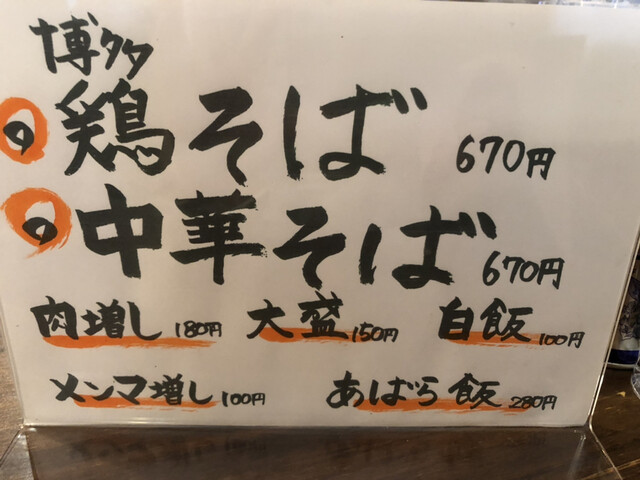 博多
鶏そば 670円
中華そば 670円
肉増し 180円 大盛 150円 白飯 100円
メンマ増し 100円 あばら飯 280円